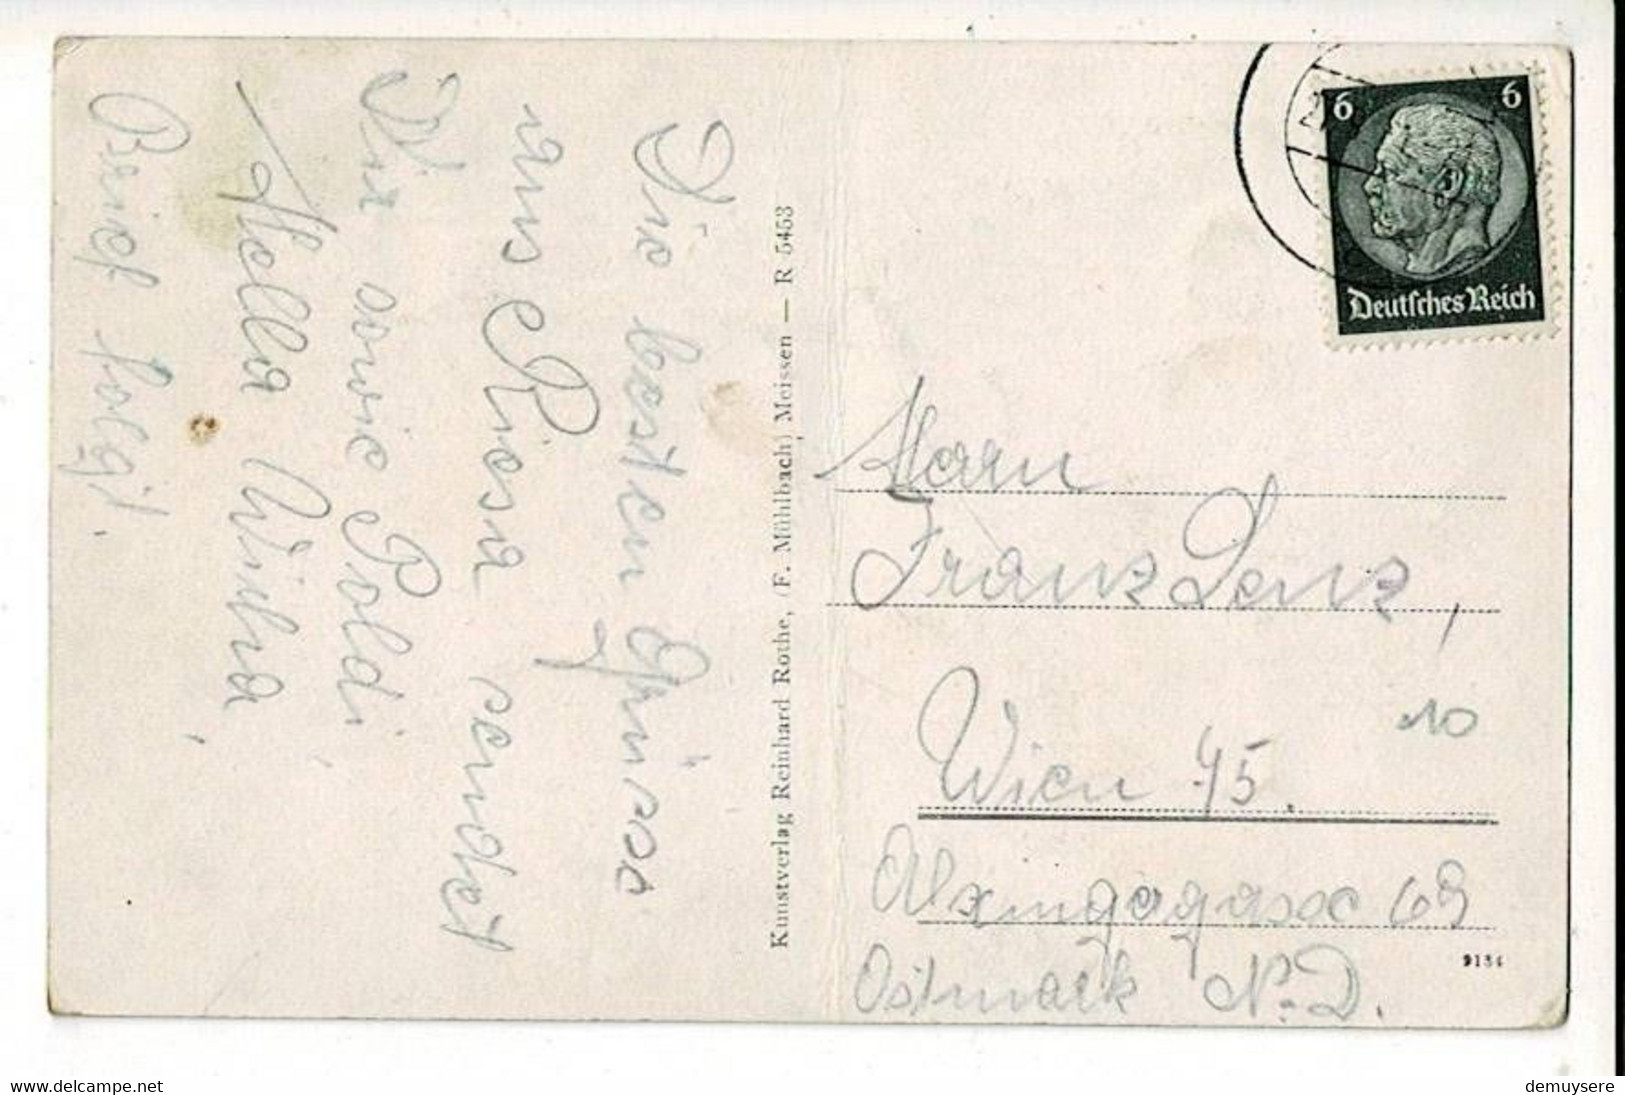 Die besten Grüsse
aus Riesa sendet
Dir sowie Poldi,
Hella Wilma,
Brief folgt.
Kunstverlag Reinhard Rothe, (F. Mühlbach) Meissen — R 5453
6 6
Deutsches Reich
Herrn
Franz Lenz,
Wien 45.
10
Alxingagasse 69
Ostmark N.D.
9134
delcampe.net
demuysere